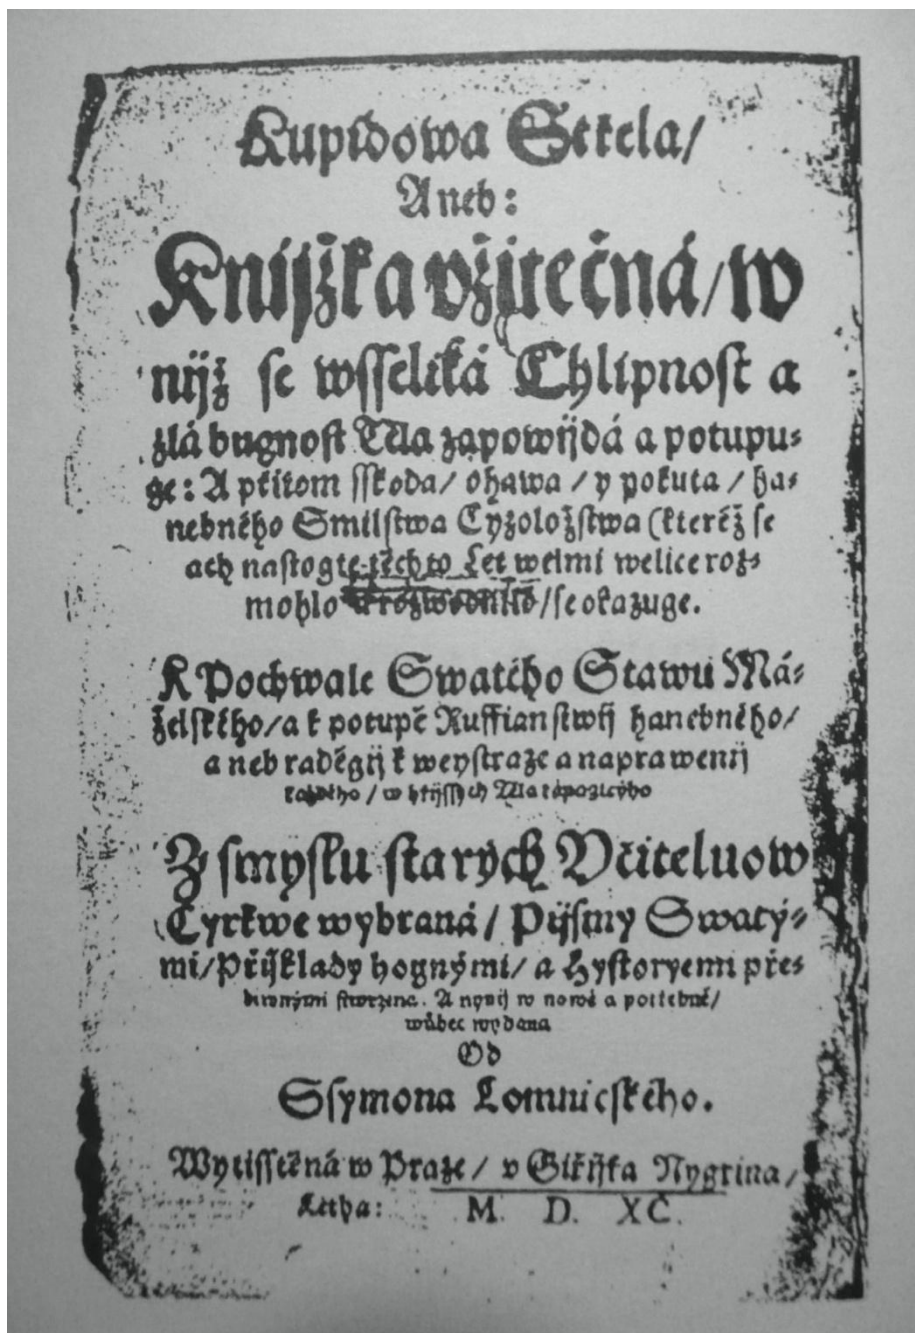 Kupidowa Střela/
Aneb:
Knijžka vžitečná/ w
nijž se wsseliká Chlipnost a
zlá bugnost Tla zapowijdá a potupu⸗
ge: A přitom sskoda/ ohawa / y pokuta / ha⸗
nebného Smilstwa Cyzoložstwa (kteréž se
ach nastogte těchto Let welmi welice roz⸗
mohlo /se okazuge.
K Pochwale Swatého Stawu Má⸗
želského/a k potupě Ruffianstwij hanebného/
a neb raděgij k weystraze a naprawenij
každého / w hřijssých
Z smyslu starých Včiteluow
Cyrkwe wybraná / Pijsmy Swatý⸗
mi/Přijklady hognými/ a Hystoryemi pře⸗
diwnými stwrzena. A nynij w nowě a potřebně/
wůbec wydana
Od
Ssymona Lomnicského.
Wytisstěná w Praze / v Giřijka Nygrina /
Letha: M. D. XC.